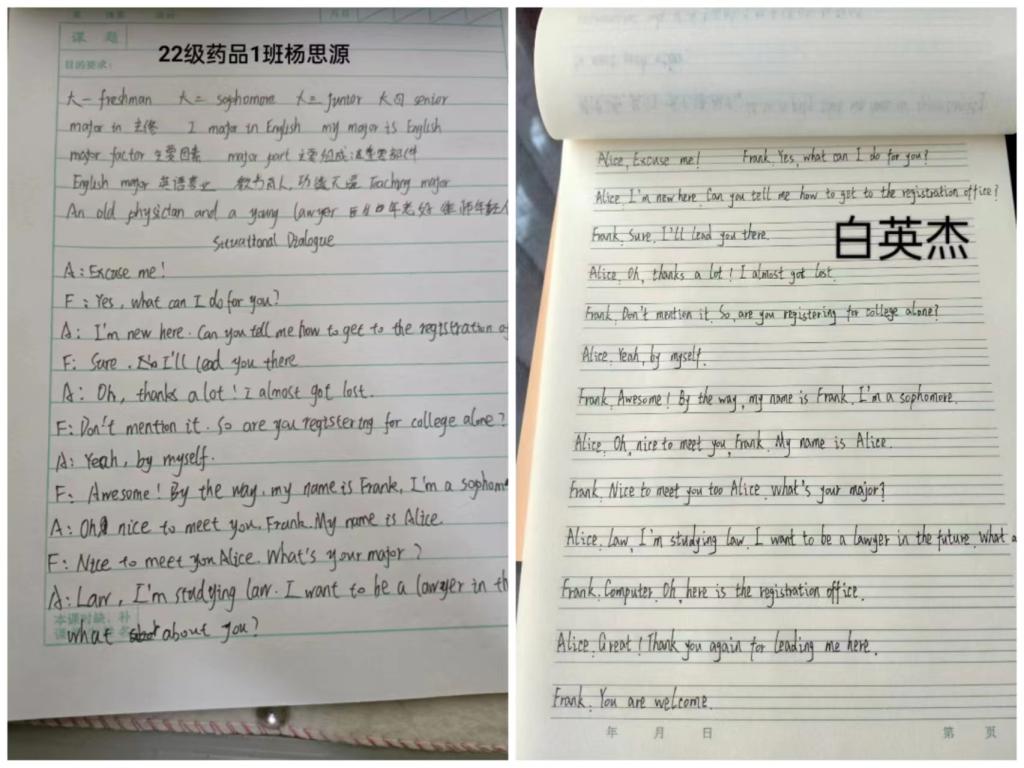 课 题
22级药品1班杨思源
目的要求:
大一 freshman 大二 sophomore 大三 junior 大四 senior
major in 主修 I major in English my major is English
major factor 主要因素 major part 主要组成
English major 英语专业 教书育人 Teaching major
An old physician and a young lawyer
Situational Dialogue
A: Excuse me!
F: Yes, what can I do for you?
A: I'm new here. Can you tell me how to get to the registration
F: Sure. I'll lead you there
A: Oh, thanks a lot! I almost got lost.
F: Don't mention it. So are you registering for college alone?
A: Yeah, by myself.
F: Awesome! By the way, my name is Frank, I'm a sophom
A: Oh nice to meet you, Frank. My name is Alice.
F: Nice to meet you Alice. What's your major?
A: Law, I'm studying law. I want to be a lawyer in th
what about you?
本课时缺、补
Alice, Excuse me! Frank. Yes, what can I do for you?
Alice. I'm new here. Can you tell me how to get to the registration office?
Frank. Sure, I'll lead you there.
白英杰
Alice, Oh, thanks a lot! I almost got lost.
Frank. Don't mention it. So, are you registering for college alone?
Alice. Yeah, by myself.
Frank, Awesome! By the way, my name is Frank, I'm a sophomore.
Alice, Oh, nice to meet you, Frank. My name is Alice.
Frank, Nice to meet you too Alice, what's your major?
Alice, Law, I'm studying law. I want to be a lawyer in the future. What a
Frank, Computer. Oh, here is the registration office.
Alice, Great! Thank you again for leading me here.
Frank, You are welcome.
年 月 日 第 页